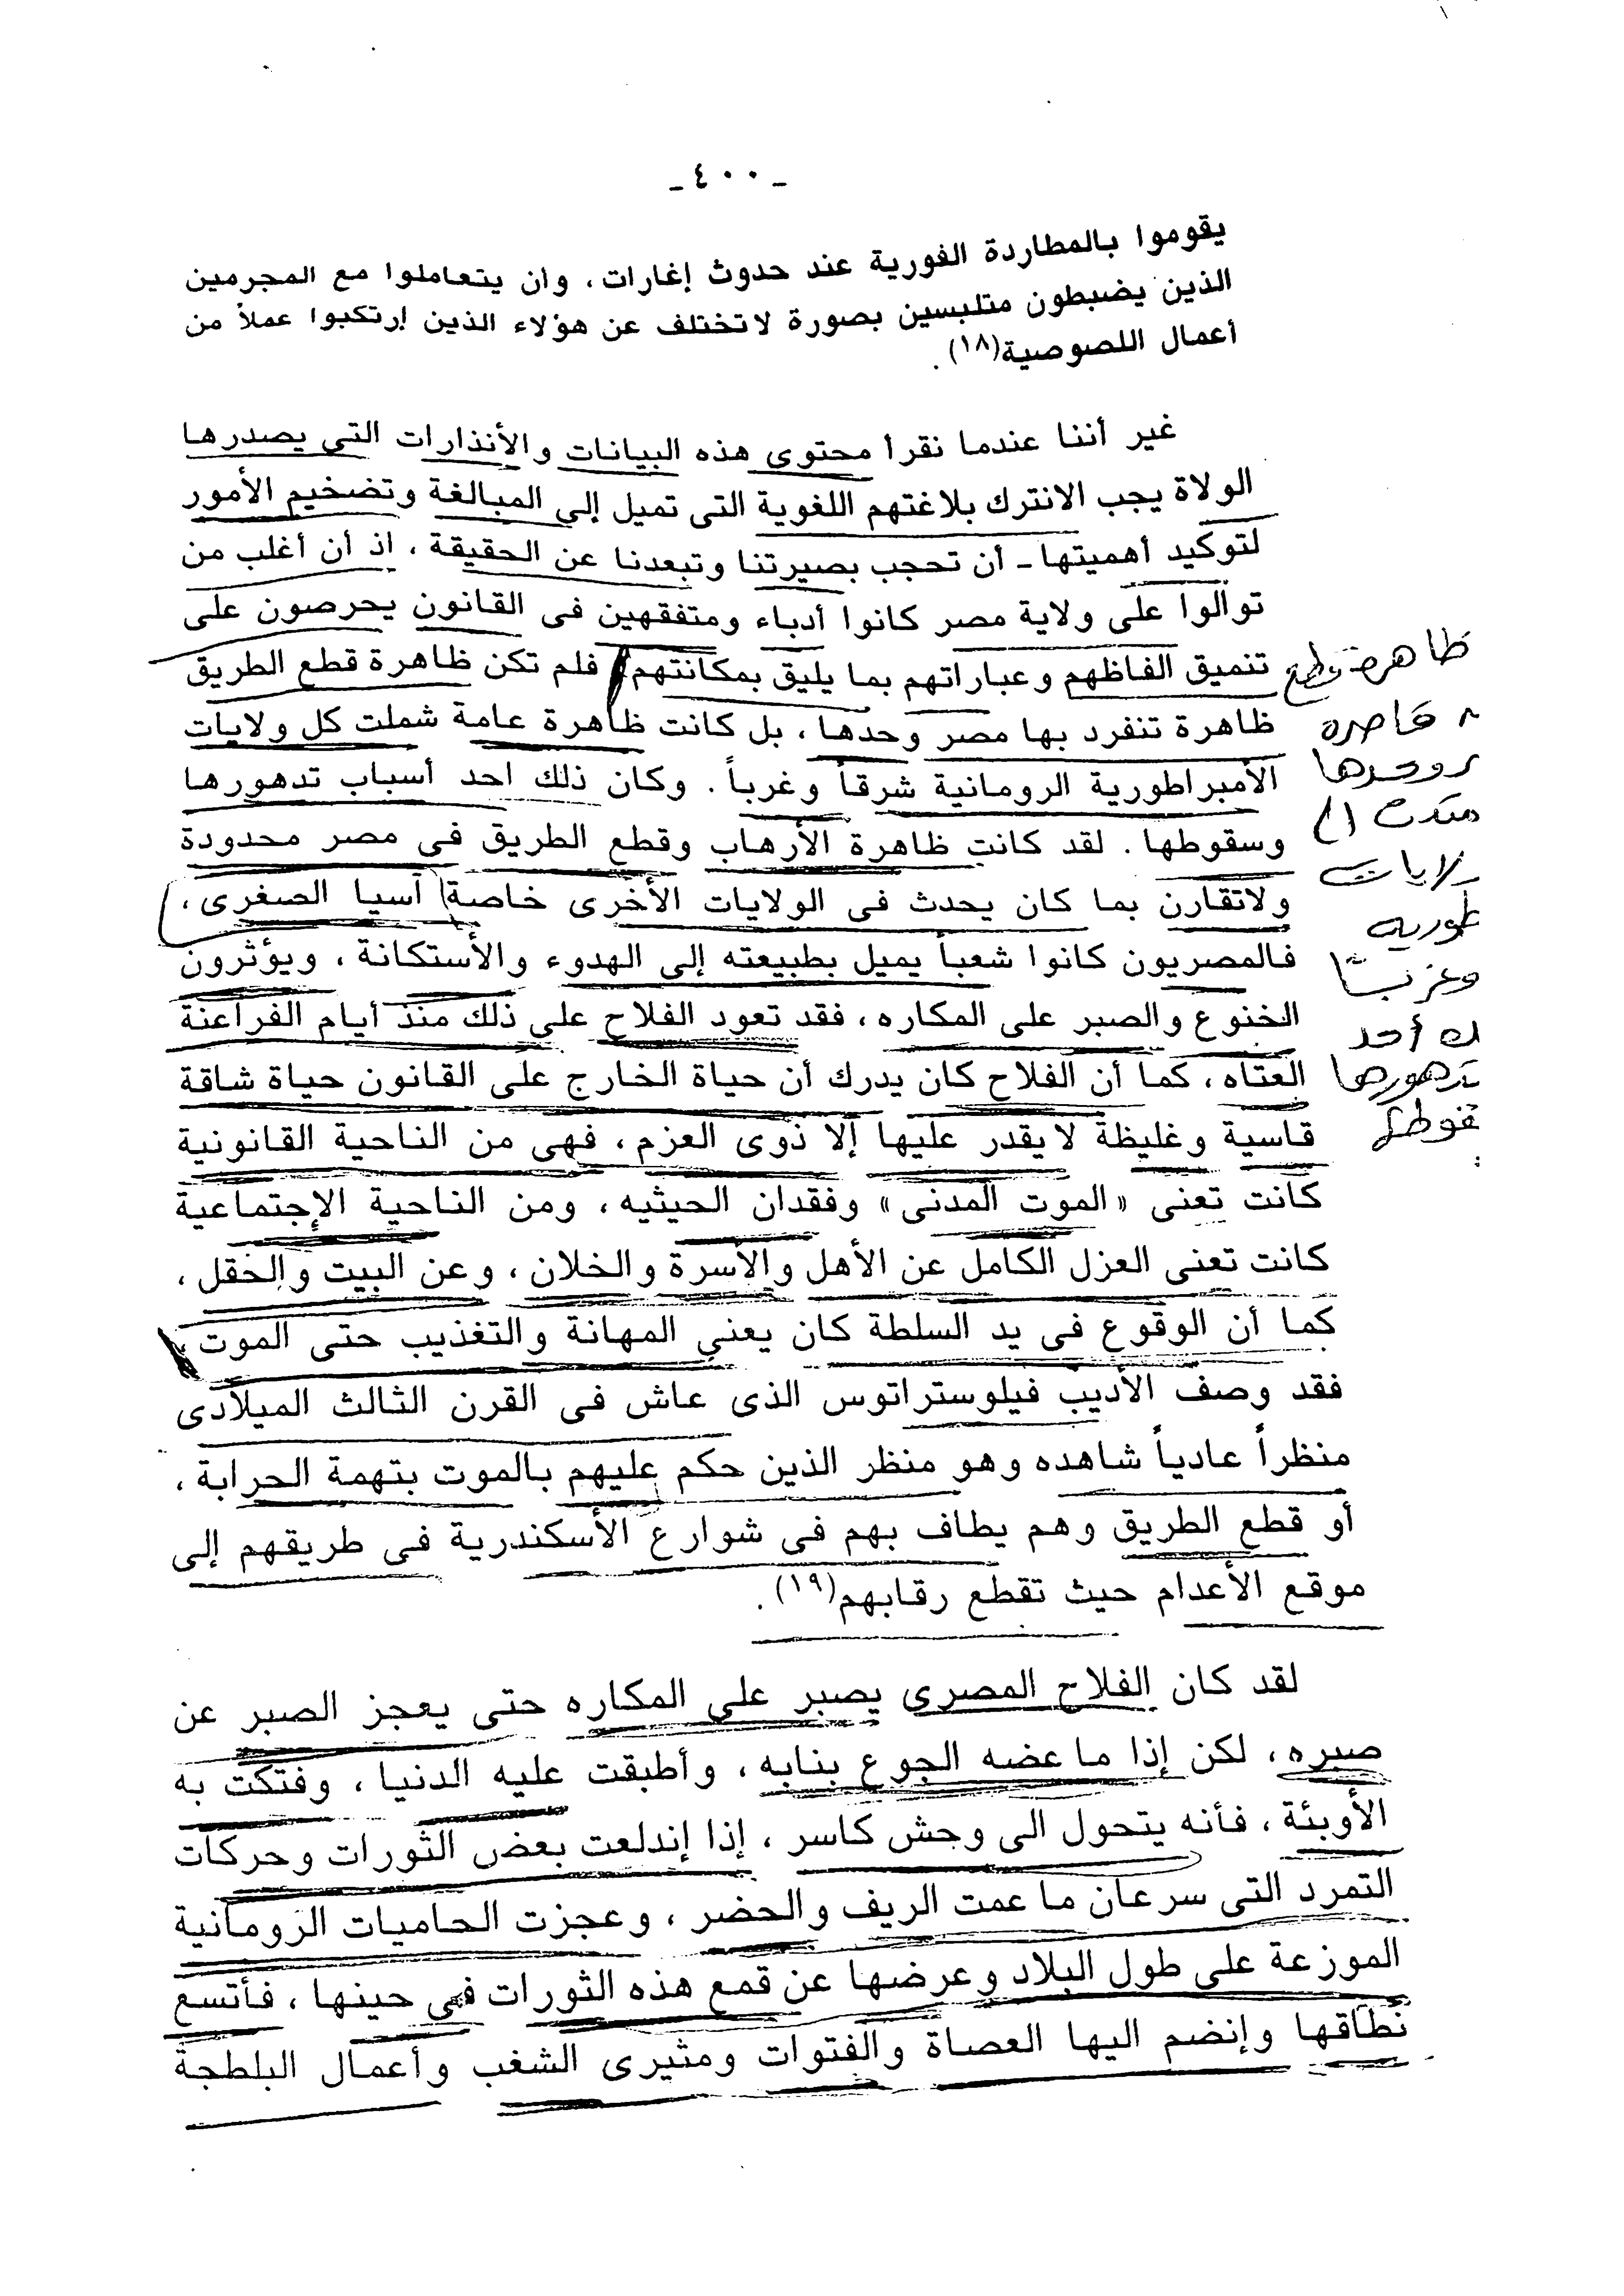 ـ ٤٠٠ ـ
يقوموا بالمطاردة الفورية عند حدوث إغارات، وان يتعاملوا مع المجرمين
الذين يضبطون متلبسين بصورة لاتختلف عن هؤلاء الذين إرتكبوا عملاً من
أعمال اللصوصية(١٨).
غير أننا عندما نقرأ محتوى هذه البيانات والأنذارات التى يصدرها
الولاة يجب الانترك بلاغتهم اللغوية التى تميل إلى المبالغة وتضخيم الأمور
لتوكيد أهميتها ـ أن تحجب بصيرتنا وتبعدنا عن الحقيقة، اذ أن أغلب من
توالوا على ولاية مصر كانوا أدباء ومتفقهين فى القانون يحرصون على
تنميق الفاظهم وعباراتهم بما يليق بمكانتهم فلم تكن ظاهرة قطع الطريق
ظاهرة تنفرد بها مصر وحدها، بل كانت ظاهرة عامة شملت كل ولايات
الأمبراطورية الرومانية شرقاً وغرباً. وكان ذلك احد أسباب تدهورها
وسقوطها. لقد كانت ظاهرة الأرهاب وقطع الطريق فى مصر محدودة
ولاتقارن بما كان يحدث فى الولايات الأخرى خاصة آسيا الصغرى،
فالمصريون كانوا شعباً يميل بطبيعته إلى الهدوء والأستكانة، ويؤثرون
الخنوع والصبر على المكاره، فقد تعود الفلاح على ذلك منذ أيام الفراعنة
العتاه، كما أن الفلاح كان يدرك أن حياة الخارج على القانون حياة شاقة
قاسية وغليظة لايقدر عليها إلا ذوى العزم، فهى من الناحية القانونية
كانت تعنى «الموت المدنى» وفقدان الحيثيه، ومن الناحية الإجتماعية
كانت تعنى العزل الكامل عن الأهل والأسرة والخلان، وعن البيت والحقل،
كما أن الوقوع فى يد السلطة كان يعنى المهانة والتغذيب حتى الموت
فقد وصف الأديب فيلوستراتوس الذى عاش فى القرن الثالث الميلادى
منظراً عادياً شاهده وهو منظر الذين حكم عليهم بالموت بتهمة الحرابة،
أو قطع الطريق وهم يطاف بهم فى شوارع الأسكندرية فى طريقهم إلى
موقع الأعدام حيث تقطع رقابهم(١٩).
لقد كان الفلاح المصرى يصبر على المكاره حتى يعجز الصبر عن
صبره، لكن إذا ما عضه الجوع بنابه، وأطبقت عليه الدنيا، وفتكت به
الأوبئة، فأنه يتحول الى وحش كاسر، إذا إندلعت بعض الثورات وحركات
التمرد التى سرعان ما عمت الريف والحضر، وعجزت الحاميات الرومانية
الموزعة على طول البلاد وعرضها عن قمع هذه الثورات فى حينها، فأتسع
نطاقها وإنضم اليها العصاة والفتوات ومثيرى الشغب وأعمال البلطجة
ظاهرة قطع
قاصرة
وحدها
ولايات
طورية
وغربا
أحد
تدهورها